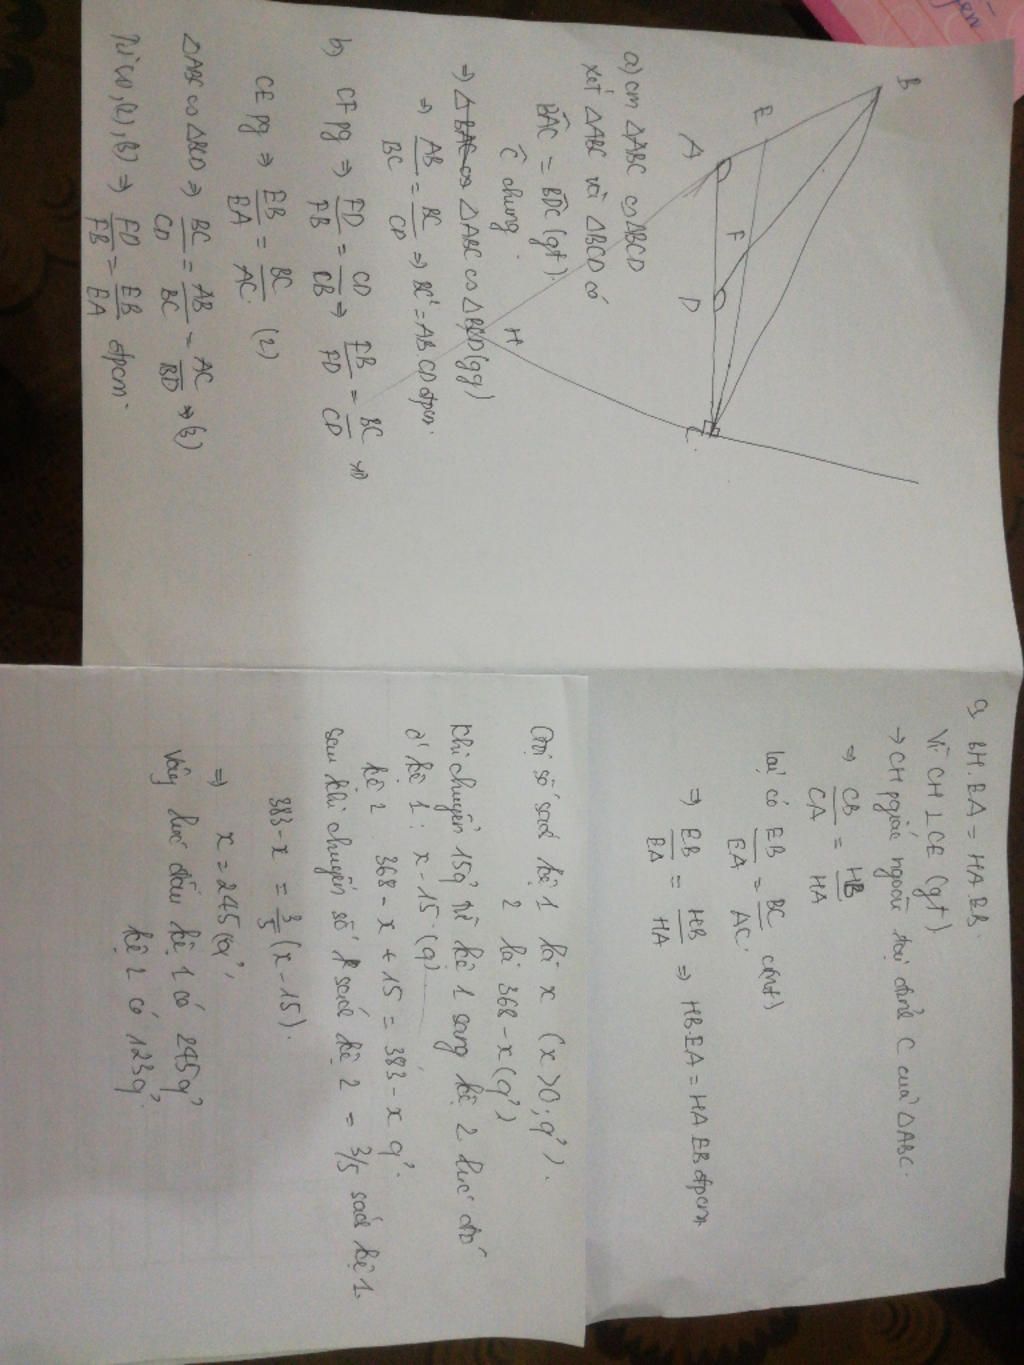 B
E
A
F
D
H
C
a) cm △ABC ∽ △BCD
xét △ABC và △BCD có
BÂC = BD̂C (gt)
Ĉ chung.
⇒ △BAC ∽ △ABC ∽ △BCD (gg)
⇒ AB/BC = BC/CD ⇒ BC² = AB.CD đpcm.
b) CF pg ⇒ FD/FB = CD/CB ⇒ FB/FD = BC/CD
CE pg ⇒ EB/EA = BC/AC. (2)
△ABC ∽ △BCD ⇒ BC/CD = AB/BC = AC/BD ⇒ (3)
Từ (1), (2), (3) ⇒ FD/FB = EB/EA đpcm.
BH.EA = HA.EB.
Vì CH ⊥ CE (gt)
→ CH pgiác ngoài tại đỉnh C của △ABC.
⇒ CB/CA = HB/HA
lại có EB/EA = BC/AC. (cmt)
⇒ EB/EA = HB/HA ⇒ HB.EA = HA EB đpcm
Gọi số sách kệ 1 là x (x>0; q').
2 là 368 - x (q')
Khi chuyển 15q' từ kệ 1 sang kệ 2 lúc đó
ở kệ 1: x - 15 (q)
kệ 2 368 - x + 15 = 383 - x q'.
sau khi chuyển số sách kệ 2 = 3/5 sách kệ 1.
383 - x = 3/5 (x - 15).
⇒ x = 245 (q')
Vậy lúc đầu kệ 1 có 245q'
kệ 2 có 123q'.